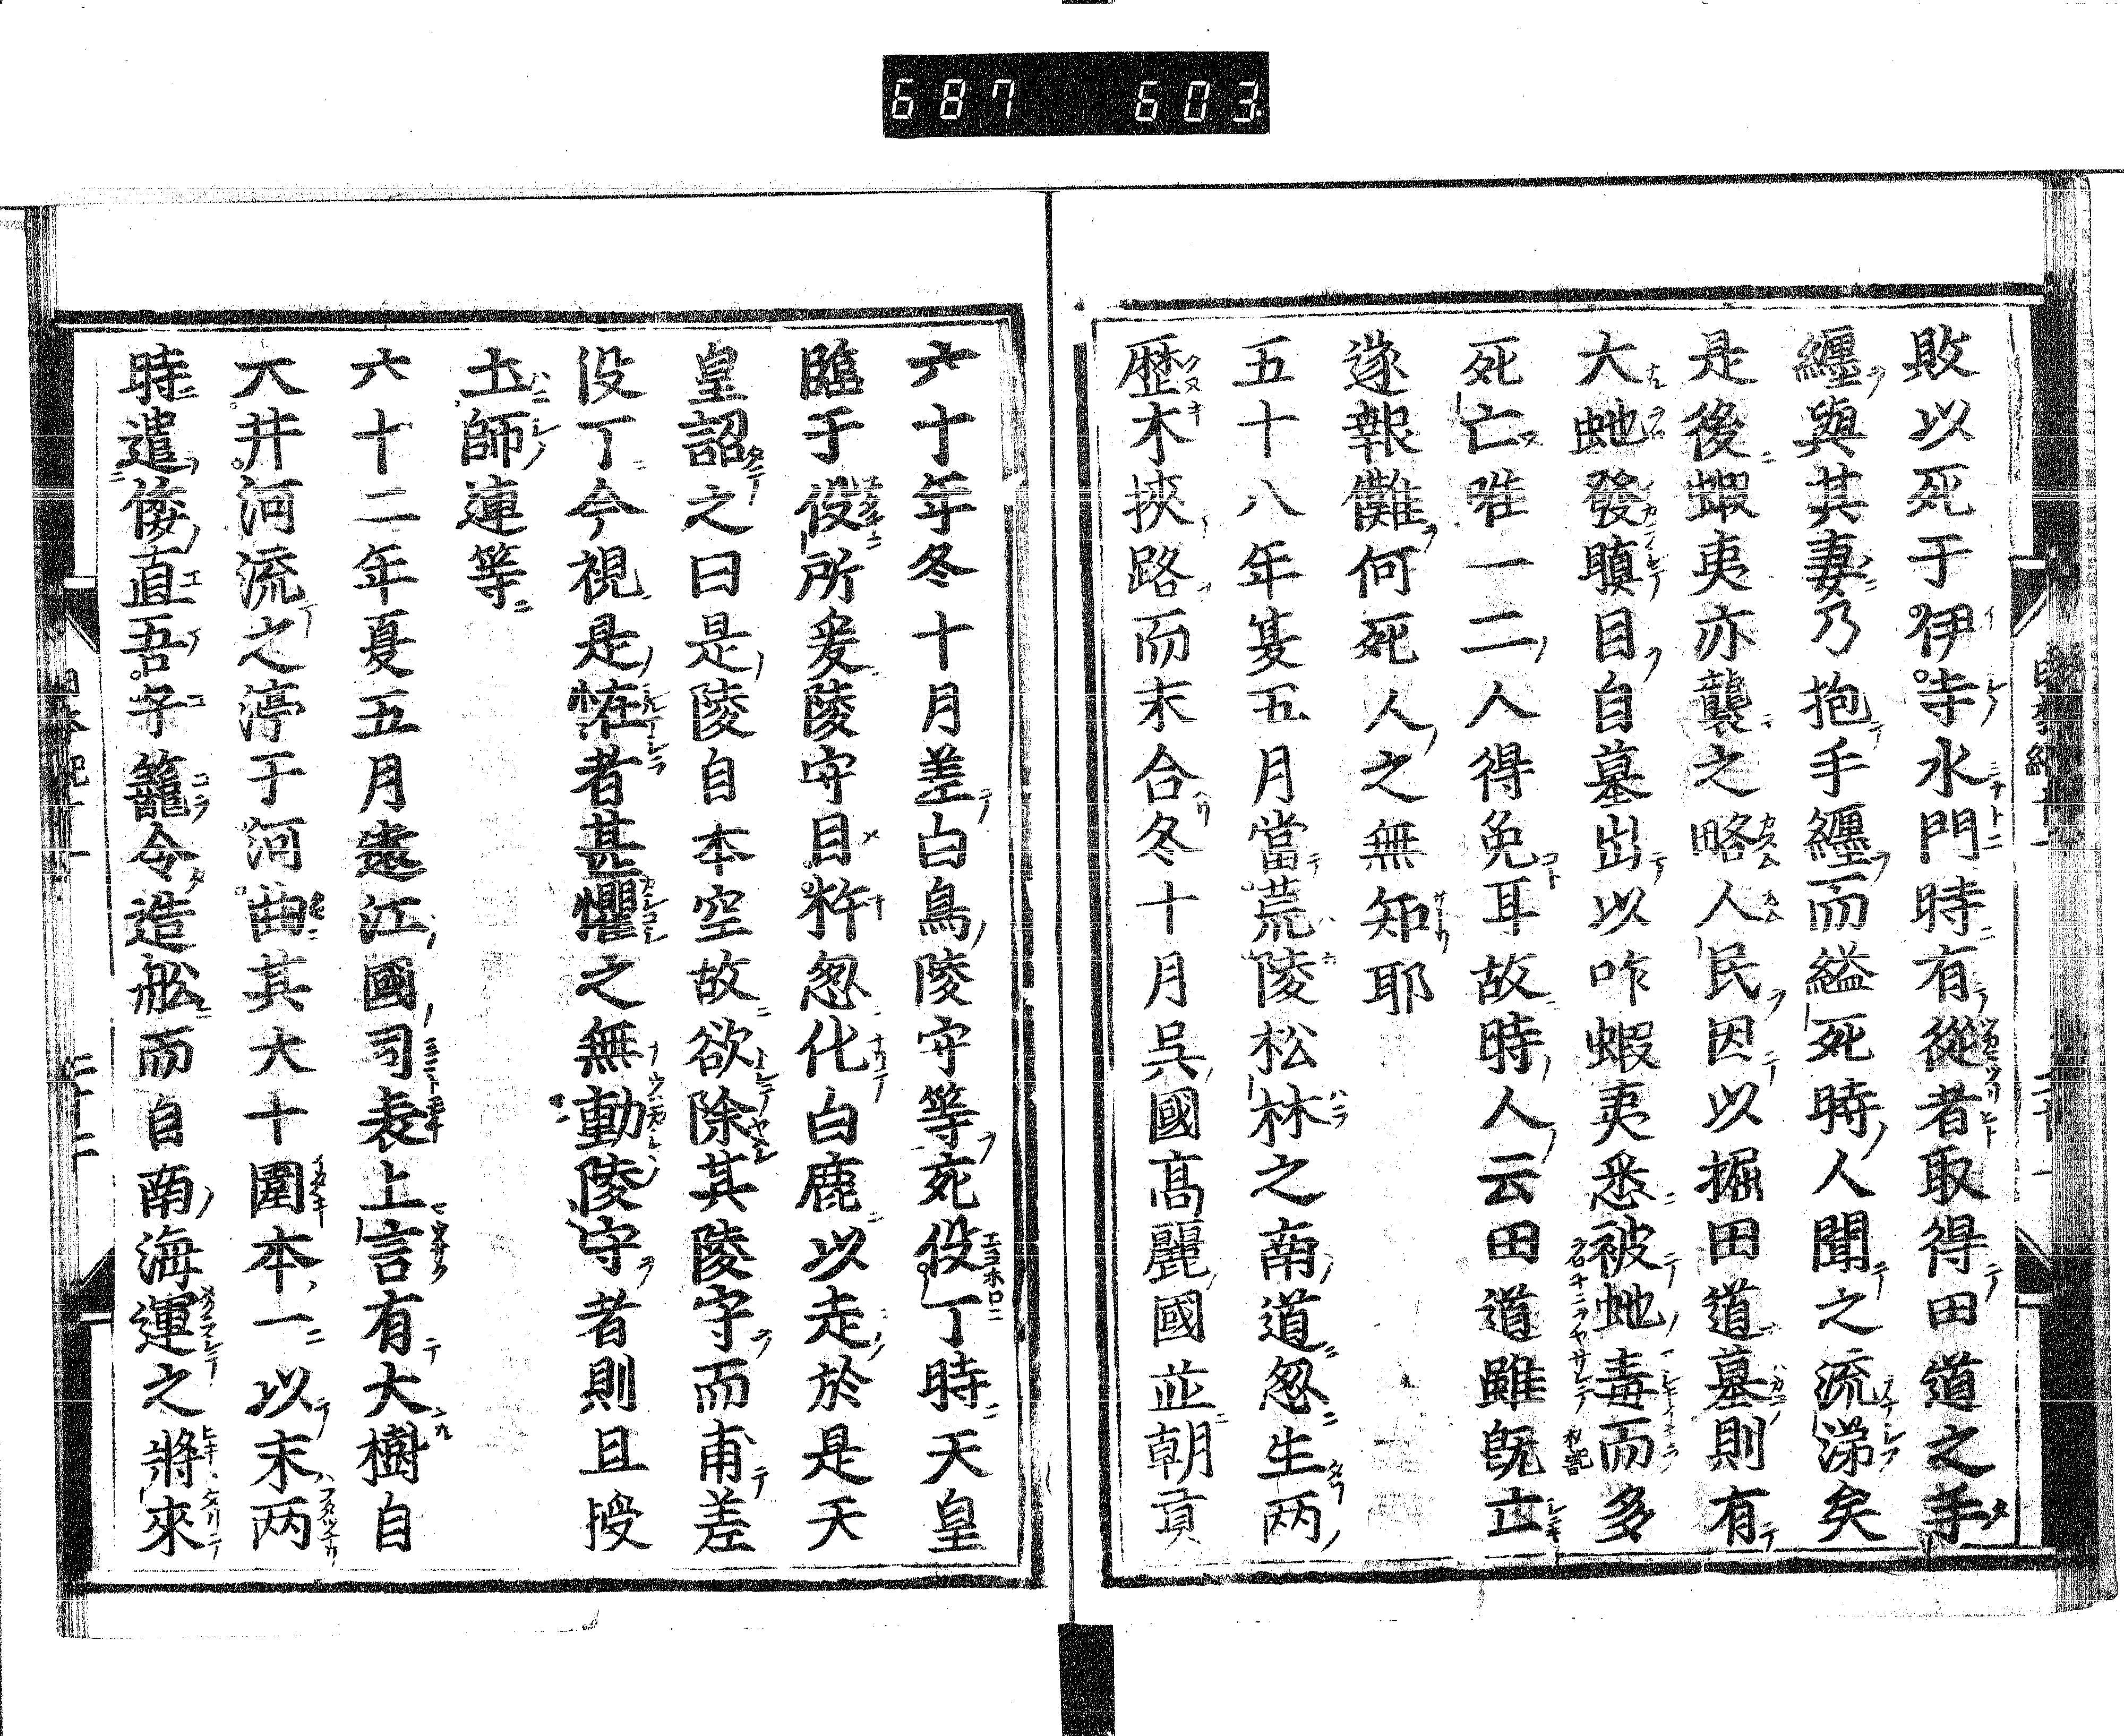 687 603
敗以死于伊寺水門時有從者取得田道之手
纒與其妻乃抱手纒而縊死時人聞之流涕矣
是後蝦夷亦襲之略人民因以掘田道墓則有
大虵發瞋目自墓出以咋蝦夷悉被虵毒而多
死亡唯一二人得免耳故時人云田道雖既亡
遂報讎何死人之無知耶
五十八年夏五月當荒陵松林之南道忽生兩
歷木挾路而末合冬十月吳國高麗國並朝貢
六十年冬十月差白鳥陵守等宛役丁時天皇
臨于役所爰陵守目杵忽化白鹿以走於是天
皇詔之曰是陵自本空故欲除其陵守而甫差
役丁今視是恠者甚懼之無動陵守者則且授
土師連等
六十二年夏五月遠江國司表上言有大樹自
大井河流之停于河曲其大十圍本一以末兩
時遣倭直吾子籠令造舩而自南海運之將來